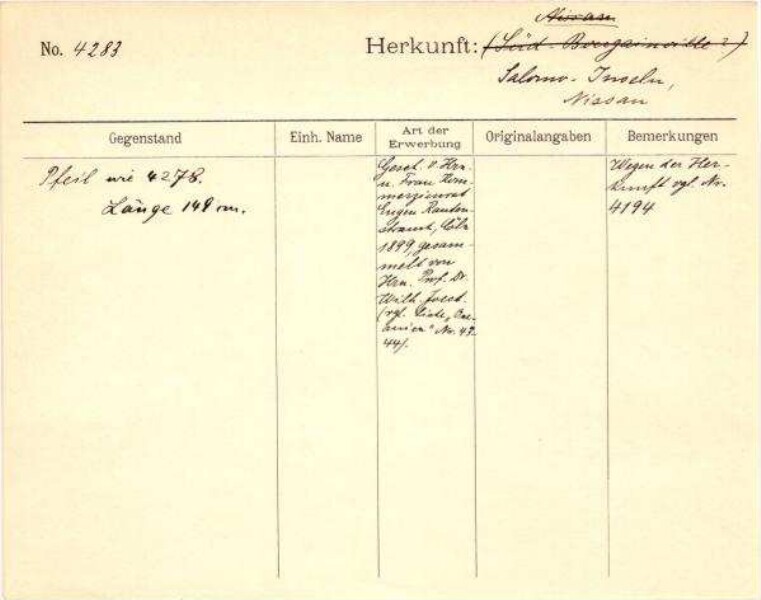 Nissan
No. 4283 Herkunft: (Süd-Bougainville?)
Salomo-Inseln,
Nissan
Gegenstand
Einh. Name
Art der
Erwerbung
Originalangaben
Bemerkungen
Pfeil wie 4278.
Länge 149 cm.
Gesch. v. Hrn.
u. Frau Kom-
merzienrat
Eugen Rauten-
strauch, Cöln
1899, gesam-
melt von
Hrn. Prof. Dr.
Wilh. Joest.
(vgl. Liste „Oce-
anien" Nr. 43-
44).
Wegen der Her-
kunft vgl. Nr.
4194